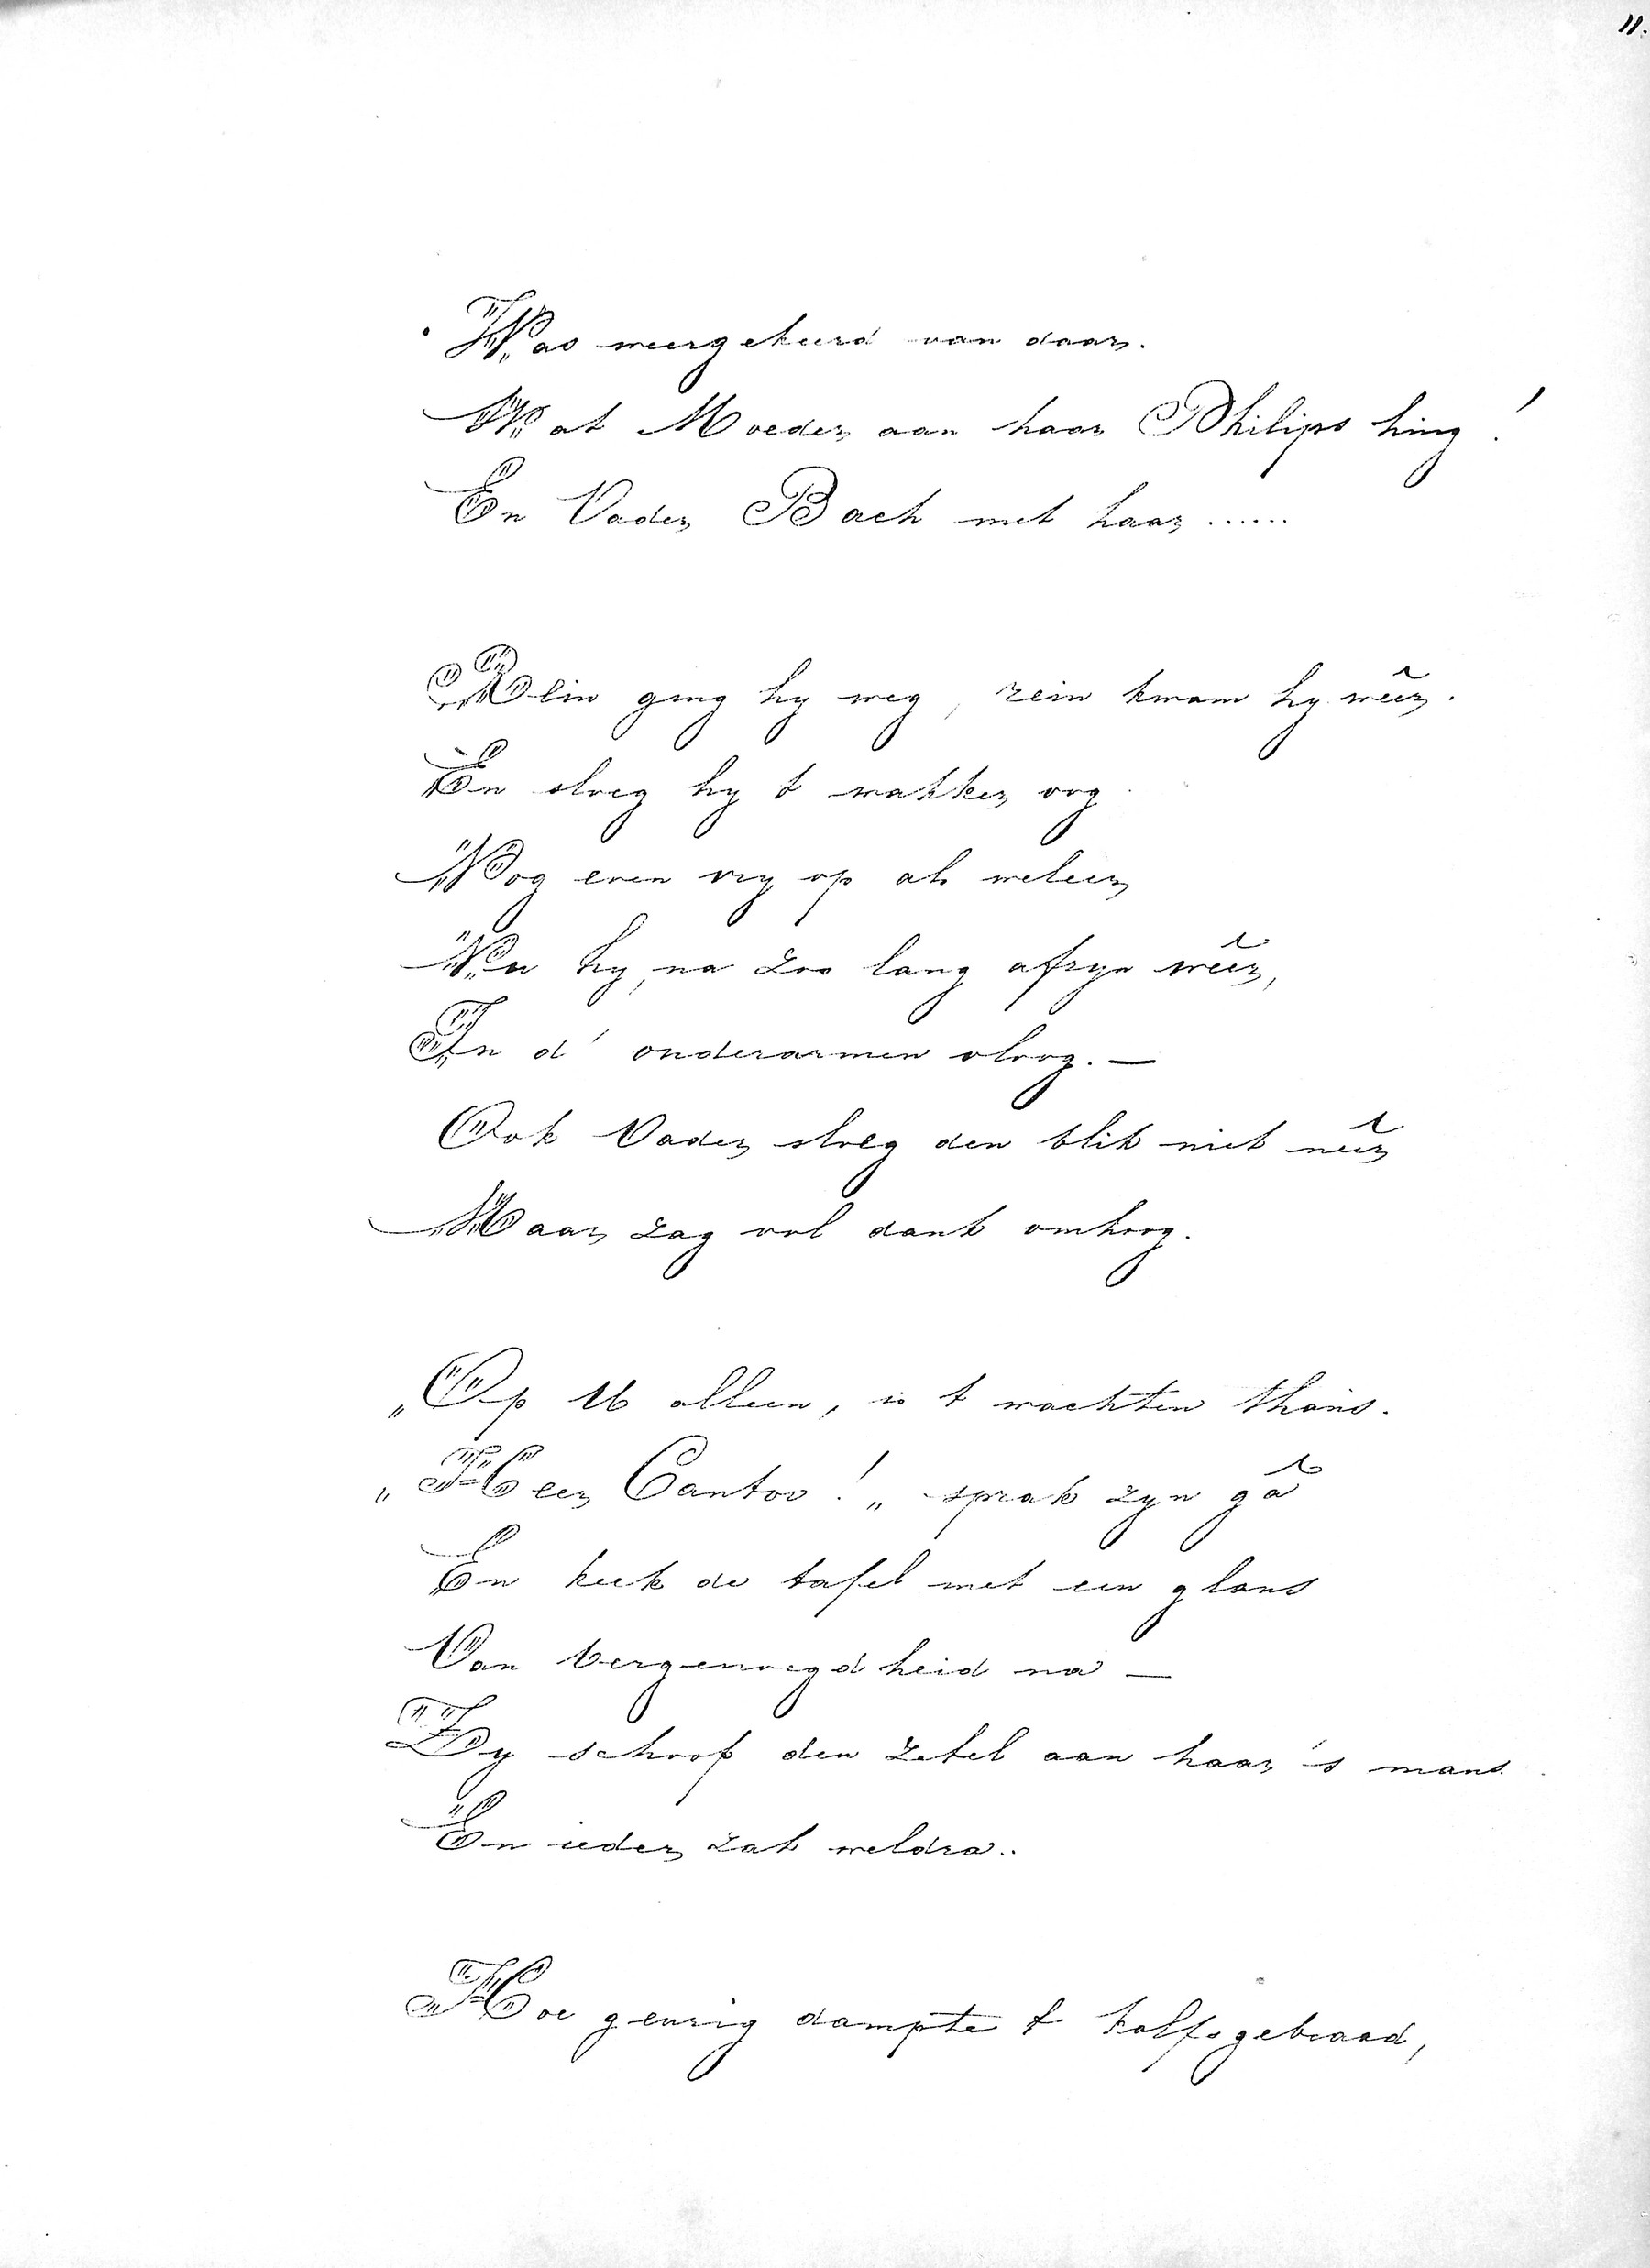 11.
Was weergekeerd van daar.
Wat Moeder aan haar Philips hing!
En Vader Bach met haar ......
Rein ging hy weg, rein kwam hy wêer.
En sloeg hy t wakker oog
Nog even vry op als weleer
Nu hy, na zoo lang afzyn wêer,
In d' ouderarmen vloog. —
Ook Vader sloeg den blik niet nêer
Maar zag vol dank omhoog.
„Op U alleen, is t wachten thans.
„Heer Cantor!„ sprak zyn gâ
En keek de tafel met een glans
Van vergenoegdheid na —
Zy schoof den zetel aan haar 's mans
En ieder zat weldra..
Hoe geurig dampte t kalfsgebraad,